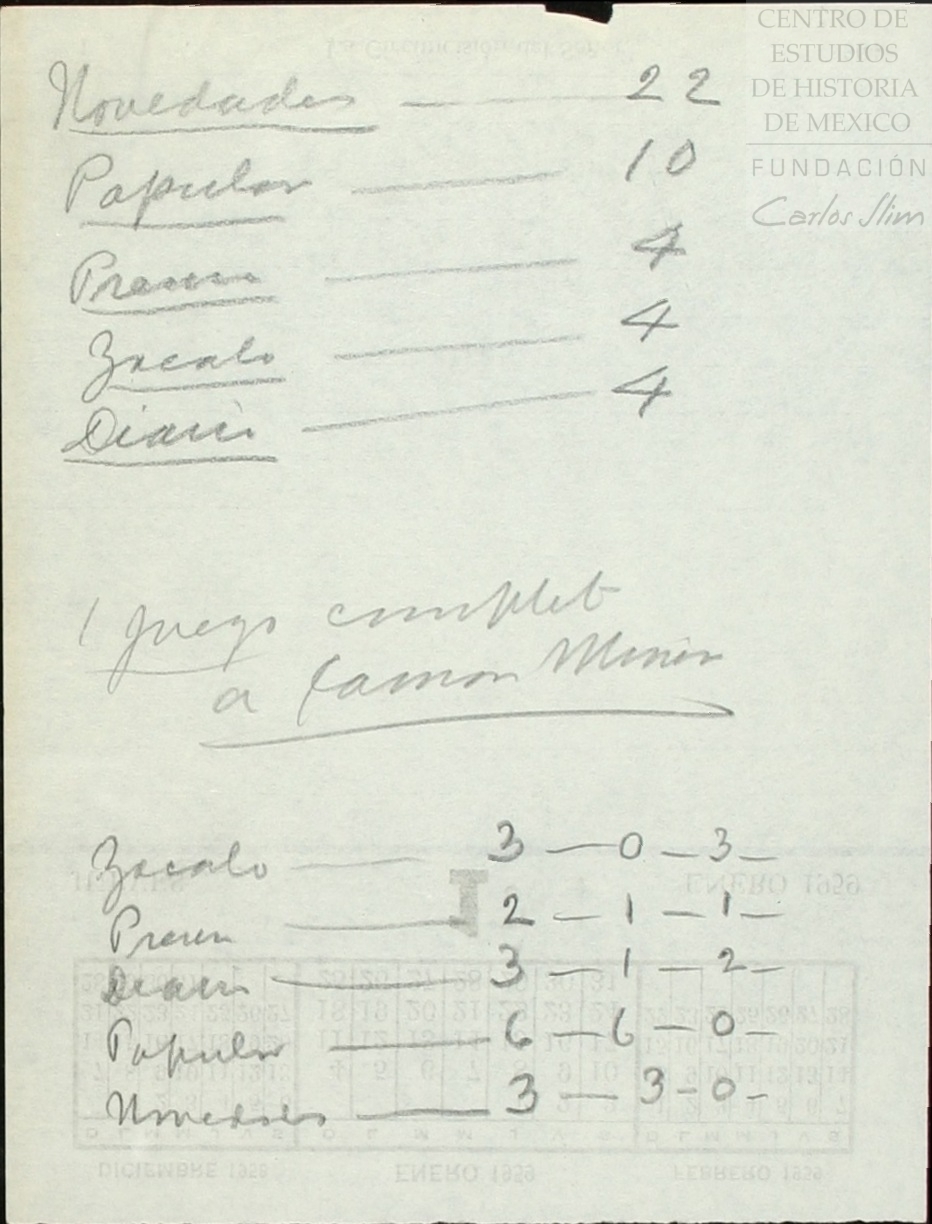 CENTRO DE
ESTUDIOS
DE HISTORIA
DE MEXICO
FUNDACIÓN
Carlos Slim
Novedades — 22
Popular — 10
Prensa — 4
Zocalo — 4
Diario — 4
1 juego complet
a Ramon
Zocalo — 3 — 0 — 3 —
Prensa — 2 — 1 — 1 —
Diario — 3 — 1 — 2 —
Popular — 6 — 6 — 0 —
Novedades — 3 — 3 - 0 -
ENERO 1959
DICIEMBRE 1958
ENERO 1959
FEBRERO 1959